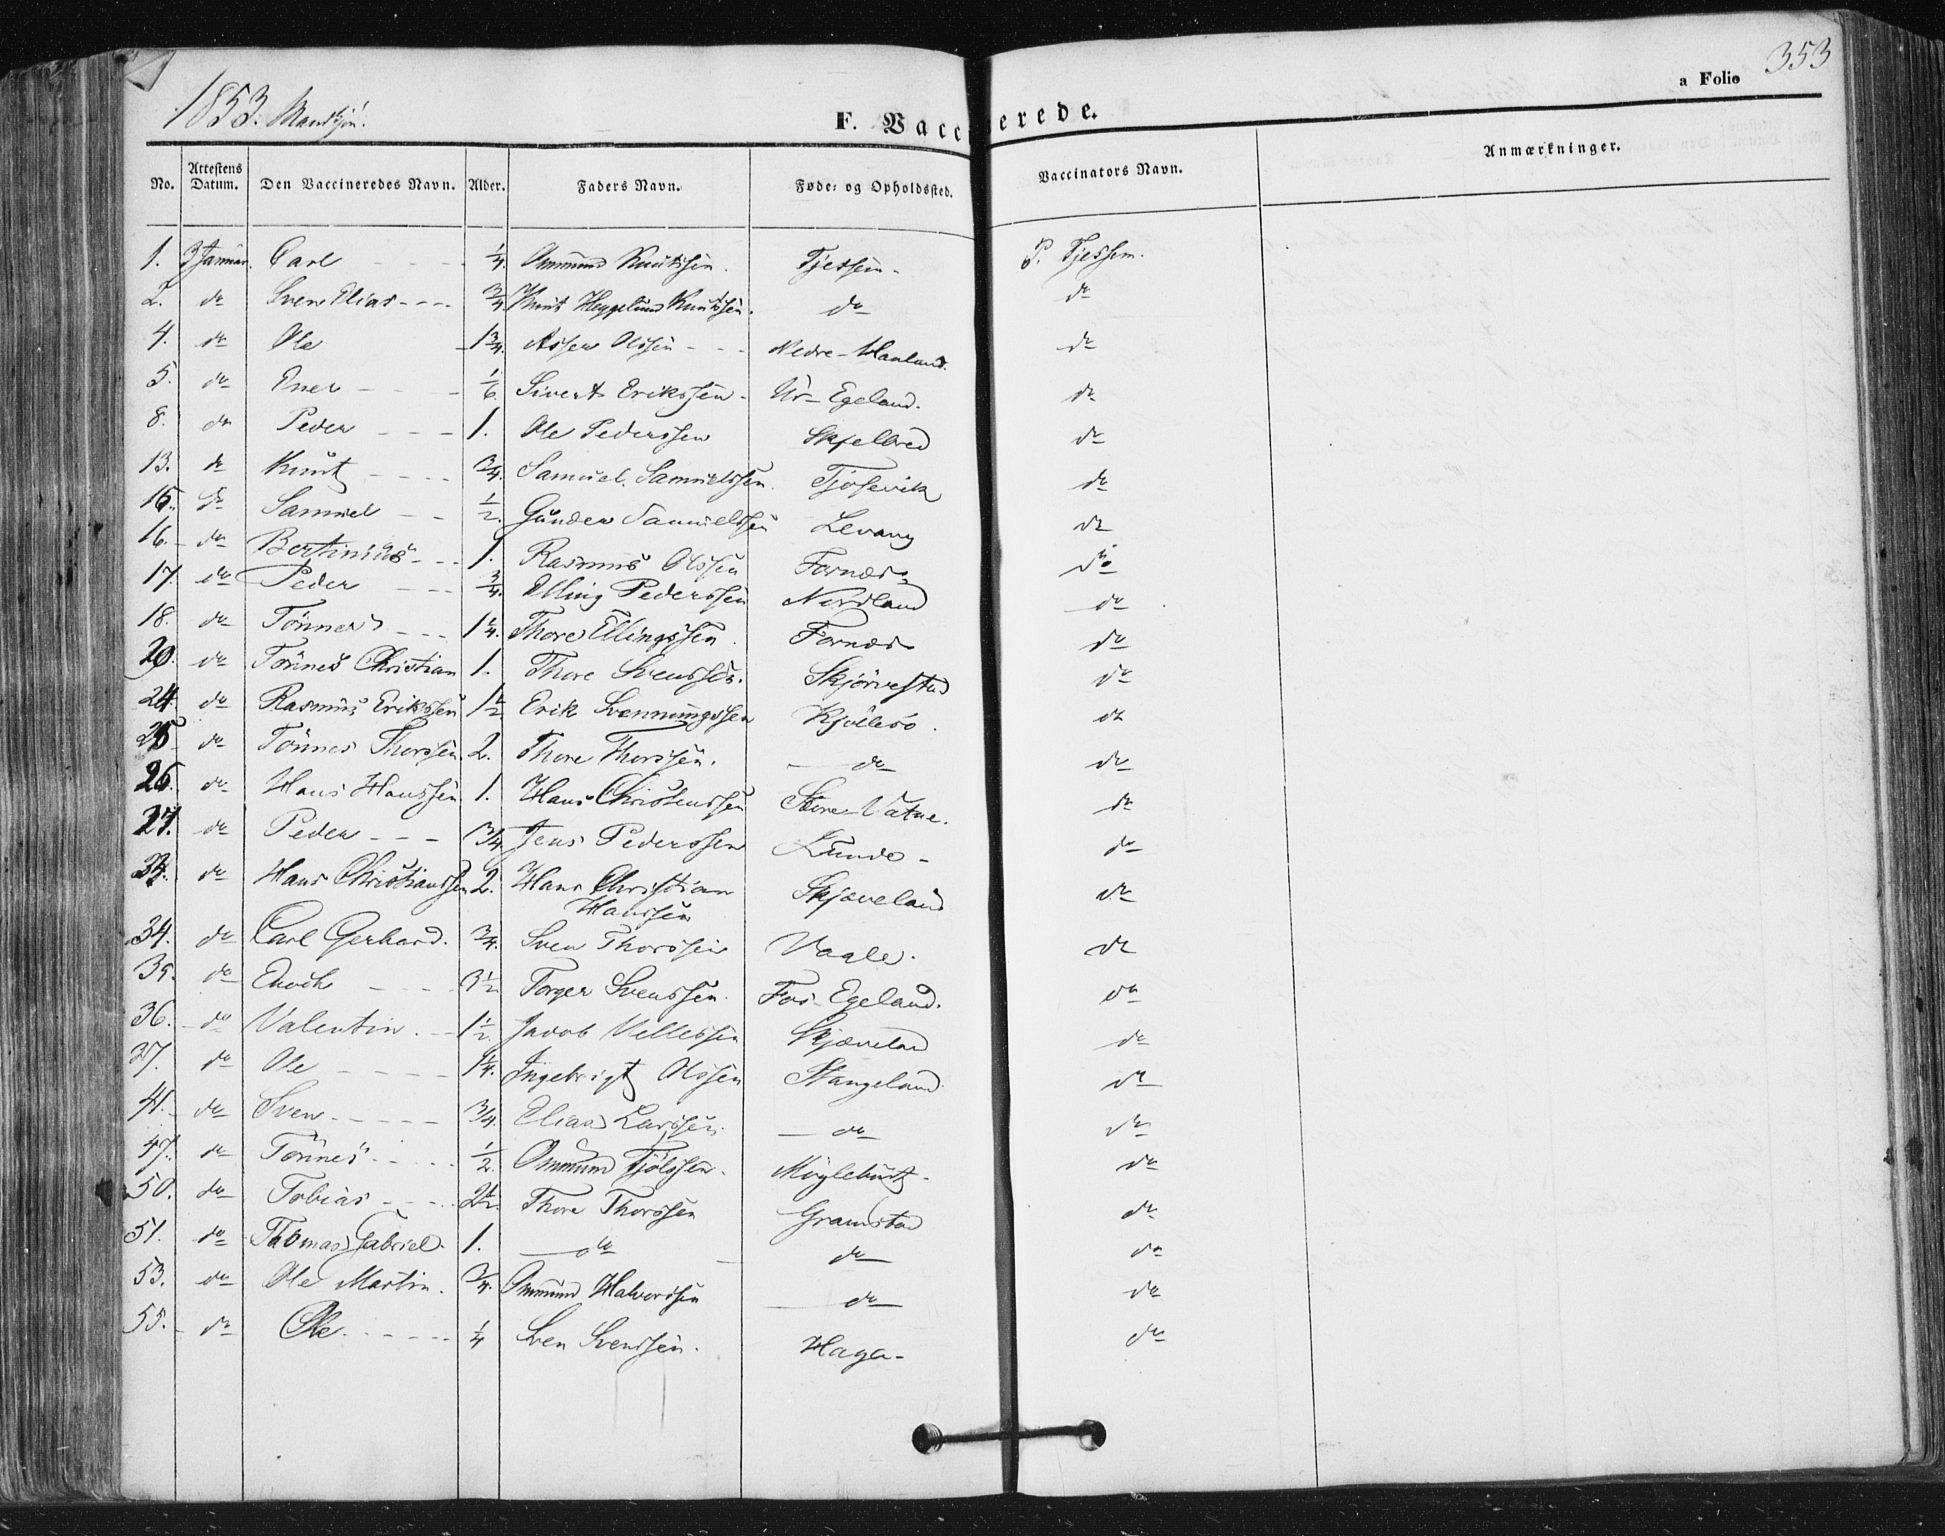 353
a Folio
1853. Mandkjön.
F. Vaccinerede.
No. Attestens Datum. Den Vaccineredes Navn. Alder. Faders Navn. Føde- og Opholdssted. Vaccinators Navn. Anmærkninger.
1. 3 Januar. Carl 1/4. Ommund Knutssen. Tjessem. P. Tjessem.
2. do Sven Elias 3/4 Knut Heggelund Knutssen. do do
4. do Ole 1 3/4. Asser Olssen Nedre-Haaland. do
5. do Ener 1/6. Sivert Erikssen Ur-Egeland. do
8. do Peder 1. Ole Pederssen Skjelbred do
13. do Knut 3/4. Samuel Samuelssen Tjosevik do
15. do Samuel 1/2. Gunder Samuelssen Levang do
16. do Bertinius 1. Rasmus Olssen Fornæs do
17. do Peder 3/4. Elling Pederssen Nordland do
18. do Tönnes 1 1/4. Thore Ellingssen. Fornæs do
20. do Tönnes Christian 1. Thore Svenssen. Skjörvestad do
24. do Rasmus Erikssen 1 1/2 Erik Svenningssen Kjöllesö. do
25 do Tönnes Thorssen 2. Thore Thorssen. do do
26. do Hans Hanssen 1. Hans Christenssen Store-Vatne. do
27. do Peder 3/4 Jens Pederssen Lunde do
33. do Hans Christianssen 2. Hans Christian Hanssen Skjæveland do
34. do Carl Gerhard. 3/4. Sven Thorssen Vaale. do
35. do Enoch 3 1/2 Torger Svenssen. Fos-Egeland. do
36. do Valentin. 1 1/2. Jacob Villessen Skjæveland do
37. do Ole 1 1/4. Ingebrigt Olssen Stangeland do
41. do Sven 3/4. Elias Larssen. do do
47. do Tönnes 1/2. Ommund Tjölssen. Mögleburt. do
50. do Tobias 2 1/2. Thore Thorssen Gramstad do
51. do Thomas Gabriel. 1. do do do
53. do Ole Martin. 3/4. Ommund Halvorssen do do
55. do Ole 1/4 Sven Svendsen. Haga. do